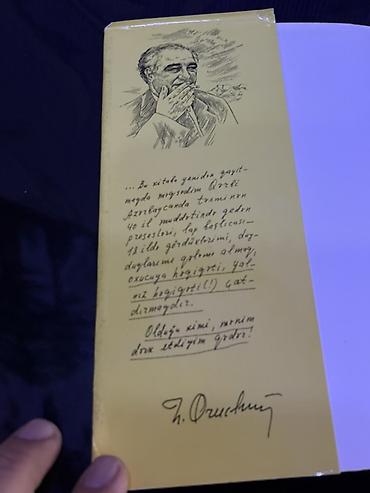 ... Bu kitaba yenidən qayıt-
maqda məqsədim
Azərbaycanda traminən
40 il müddətində gedən
prosesləri, ləp başlıcası-
18 ildə gördüklərimi, duy-
duqlarımı qələmə almaq,
oxucuya həqiqəti, yal-
nız həqiqəti(!) çat-
dırmaqdır.
Olduğu kimi, mənim
dərk etdiyim qədər!